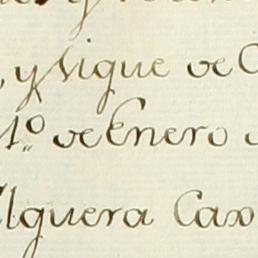 , y sigue de
1.º de Enero
lguera Cax